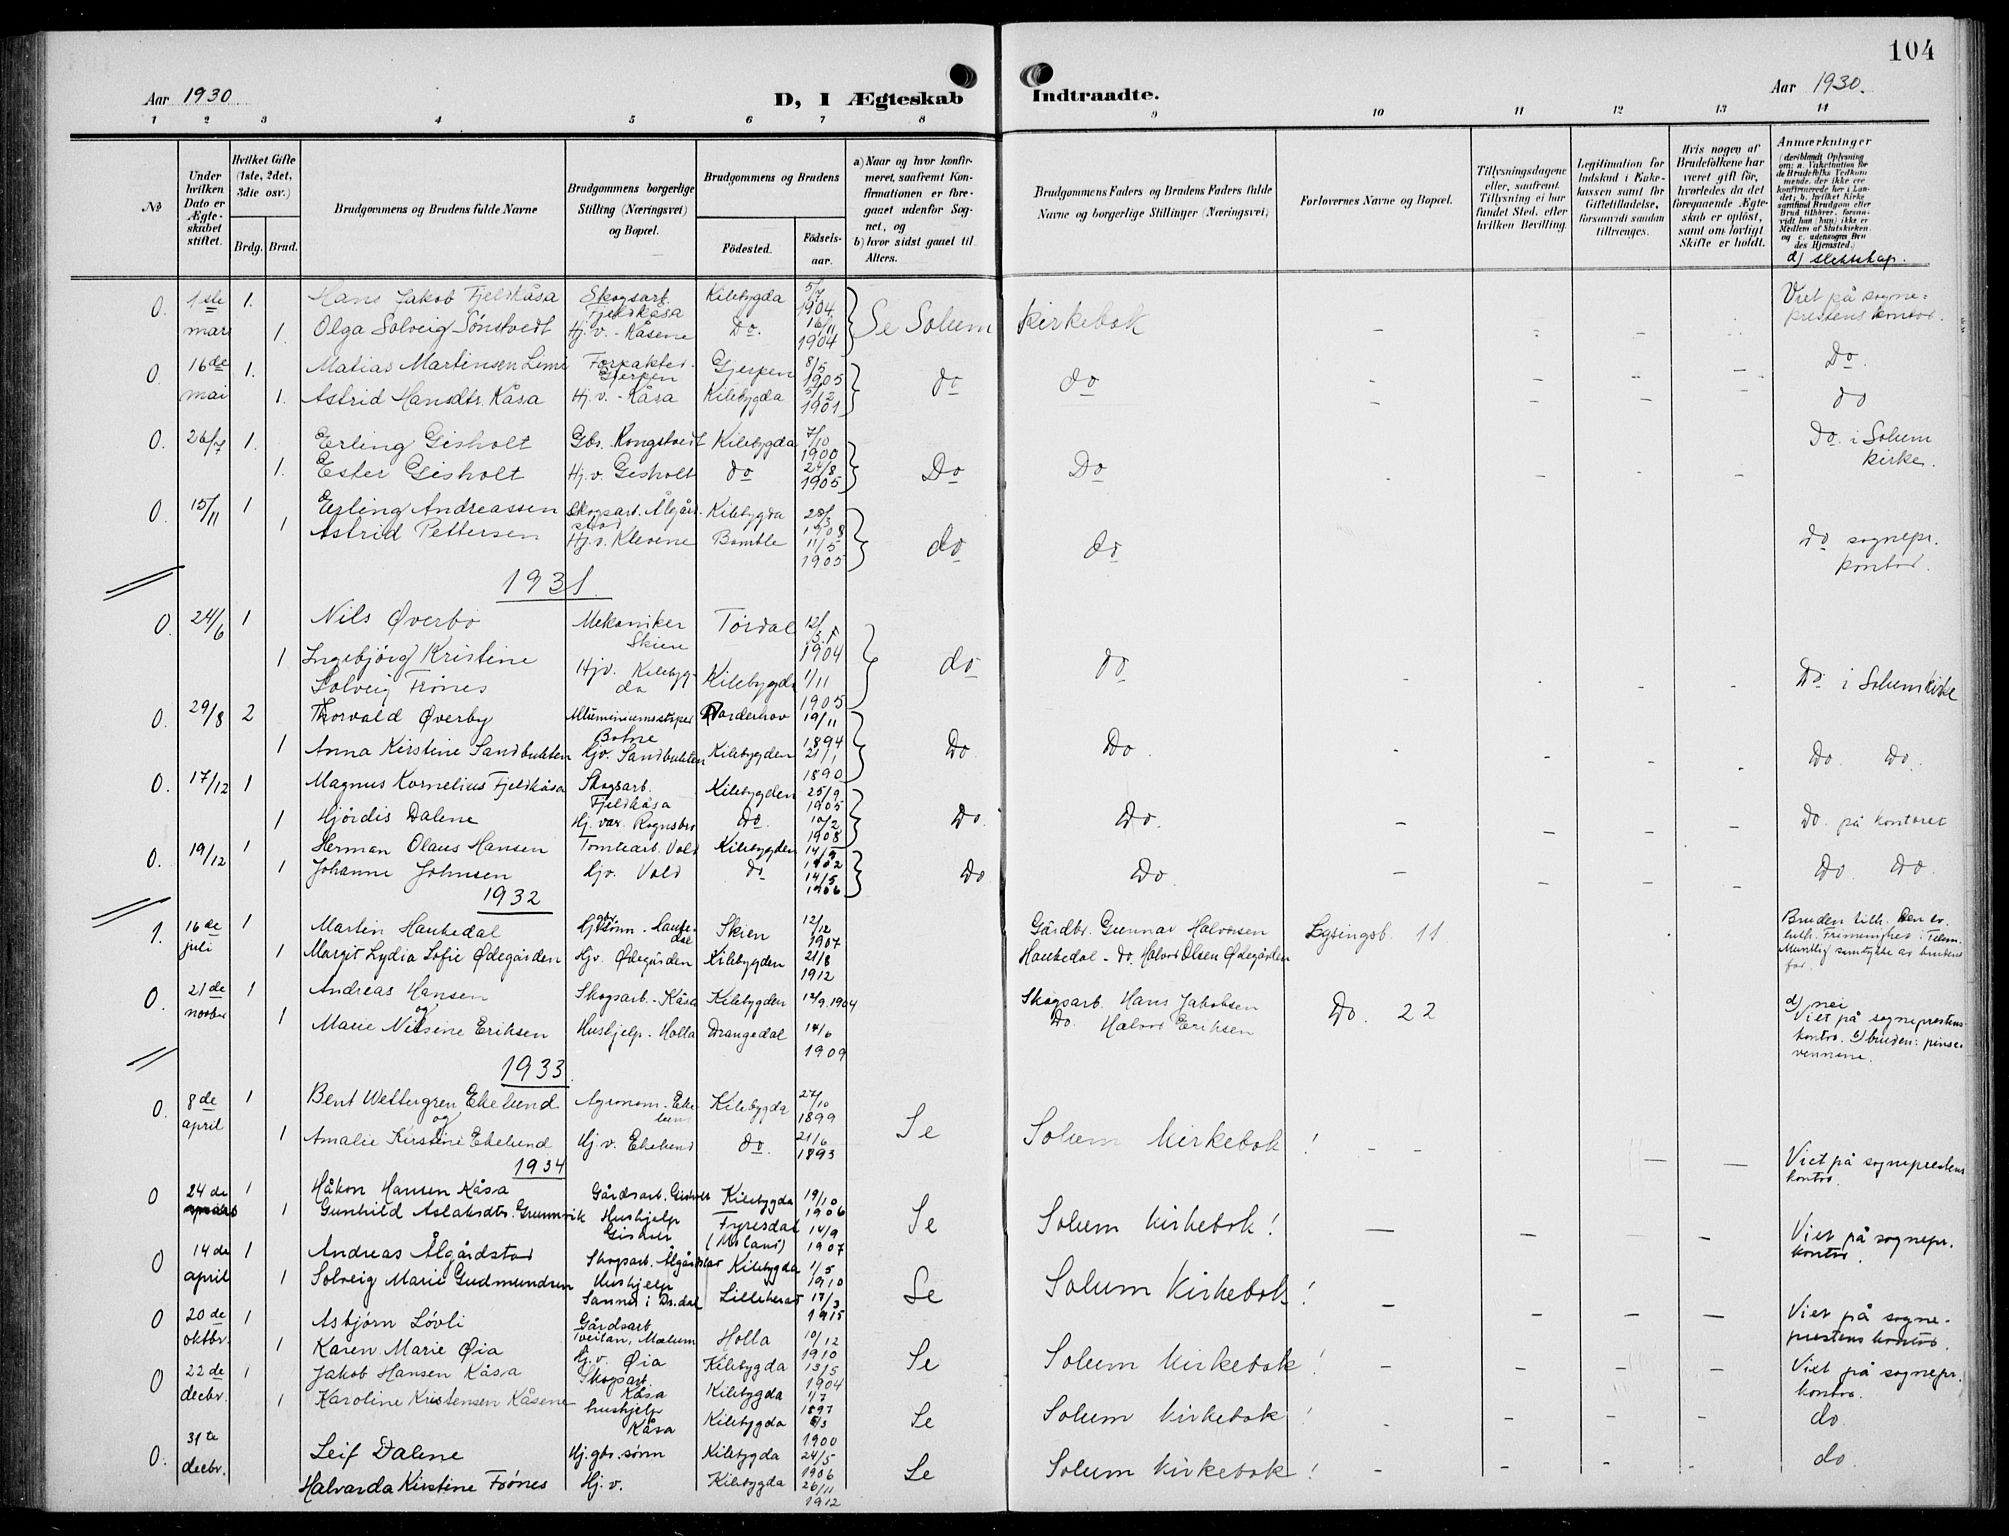 104
Aar 1930
D, I Ægteskab Indtraadte.
Aar 1930.
1 2 3 4 5 6 7 8 9 10 11 12 13 14
No
Under hvilken Dato er Ægteskabet stiftet.
Hvilket Gifte (1ste, 2det, 3die osv.)
Brdg. Brud.
Brudgommens og Brudens fulde Navne
Brudgommens borgerlige Stilling (Næringsvei) og Bopæl.
Brudgommens og Brudens
Fødested.
Fødsels-aar.
a) Naar og hvor konfirmeret, saafremt Konfirmationen er foregaaet udenfor Sognet, og
b) hvor sidst gaaet til Alters.
Brudgommens Faders og Brudens Faders fulde Navne og borgerlige Stillinger (Næringsvei)
Forlovernes Navne og Bopæl.
Tillysningsdagene eller, saafremt Tillysning ei har fundet Sted, efter hvilken Bevilling.
Legitimation for Indskud i Enkekassen samt for Giftetilladelse, forsaavidt saadan tiltrænges.
Hvis nogen af Brudefolkene har været gift før, hvorledes da det foregaaende Ægteskab er opløst, samt om lovligt Skifte er holdt.
Anmærkninger
d) slektskap.
0. 1ste 1. Hans Jakob Fjeldkåsa Skogsarb. Fjeldkåsa Kilebygda 5/7 1904 Se Solum kirkebok Viet på sogneprestens kontor.
mars 1. Olga Solveig Tønstvedt Hj.v. - Kåsene Do. 16/11 1904
0. 16de 1. Matias Martinsen Lime Forpakter Gjerpen Gjerpen 8/5 1905 do do Do.
mai 1. Astrid Hansdtr. Kåsa Hj.v. - Kåsa Kilebygda 5/12 1901 do
0. 26/7 1. Erling Gisholt Gbr. Rongstvedt Kilebygda 7/10 1900 Do Do Do. i Solum kirke.
1. Ester Gisholt Hj.v. Gisholt do 24/8 1905
0. 15/11 1 Erling Andreassen Skogsarb. Ålgårdstad Kilebygda 28/3 1908 do do Do sognepr. kontor.
1 Astrid Pettersen Hj.v. Klevene Bamble 11/5 1905
1931.
0. 24/6 1 Nils Øverbø Mekaniker Skien Tørdal 12/3 1904 do do Do i Solum kirke
1 Ingebjörg Kristine Solveig Frönes Hjv. Kilebygda Kilebygda 1/11 1905
0. 29/8 2 Thorvald Øverby Botne Norderhov 19/11 1894 Do Do. Do. Do.
1 Anna Kirstine Sandbukten Hjv. Sandbukten Kilebygden 21/1 1890
0. 17/12 1 Magnus Kornelius Fjeldkåsa Skogsarb. Fjeldkåsa Kilebygden 25/9 1905 Do. Do. Do. på kontoret
1 Hjördis Dalene Hj. vær. Rognsbru Do. 10/2 1908
0. 19/12 1 Herman Olaus Hansen Tomtearb. Vold Kilebygden 14/9 1902 Do Do. Do. Do.
1 Johanne Johnsen Hjv. Vold Do 14/5 1906
1932
1. 16de 1 Martin Haukedal Hj. gbr. sønn - Haukedal Skien 12/12 1907 Gårdbr. Gunnar Halvorsen Lysingsb. 11 Bruden tilh. Den ev. luth. Frimenighet i Telem. Muntlig samtykke av brudens far.
juli 1 Margit Lydia Sofie Ødegården Hjv. Ødegården Kilebygden 21/8 1912 Haukedal - Do. Halvor Olsen Ødegården
0. 21de 1 Andreas Hansen Skogsarb. - Kåsa Kilebygden 12/9.1904 Skogsarb. Hans Jakobsen Do. 22 d) nei Viet på sogneprestens kontor. b) bruden: pinsevennene.
novbr 1 og Marie Nilsine Eriksen Hushjelp - Holla Drangedal 14/6 1909 Do. Halvor Eriksen
1933.
0. 8de 1 Bent Wettergren Ekelund Agronom. Ekelund Kilebygda 27/10 1899 Se Solum Kirkebok!
april 1 og Amalie Kirstine Ekelund Hj.v. Ekelund do. 21/6 1893 Viet på sogneprestens kontor.
1934
0 24de 1 Håkon Hansen Kåsa Gårdsarb. Gisholt Kilebygda 19/10 1906 Se Solum kirkebok! Viet på sognepr. kontor.
1 Gunhild Aslaksdtr. Grunnvik Hushjelp Gisholt Fyresdal (Moland) 14/9 1907
0 14de 1 Andreas Ålgårdstad Skogsarb. Ålgårdstad Kilebygda 1/5 1910 Se Solum Kirkebok!
april 1 Solveig Marie Gudmundsen Hushjelp Sannes i Dr.dal Lilleherad 17/3 1915
0 20de 1 Asbjørn Løvli Gårdsarb. Tveitan, Mælum Holla 10/12 1910 Se Solum Kirkebok! Viet på sogneprestens kontor.
oktbr. 1 Karen Marie Øia Hj.v. Øia Kilebygda 13/5 1904
0 22de 1 Jakob Hansen Kåsa Skogsarb. Kåsa Kilebygda 1/7 1897 Se Solum kirkebok! Viet på sognepr. kontor.
decbr. 1 Karoline Kristensen Kåsene hushjelp Kåsa Kilebygda 8/3 1900 do.
0. 31te decbr. Leif Dalene Hj. gbr. sønn Kilebygda 24/5 1906 Se Solum kirkebok! do.
Halvarda Kirstine Frönes Hj.v. Kilebygda 26/11 1912